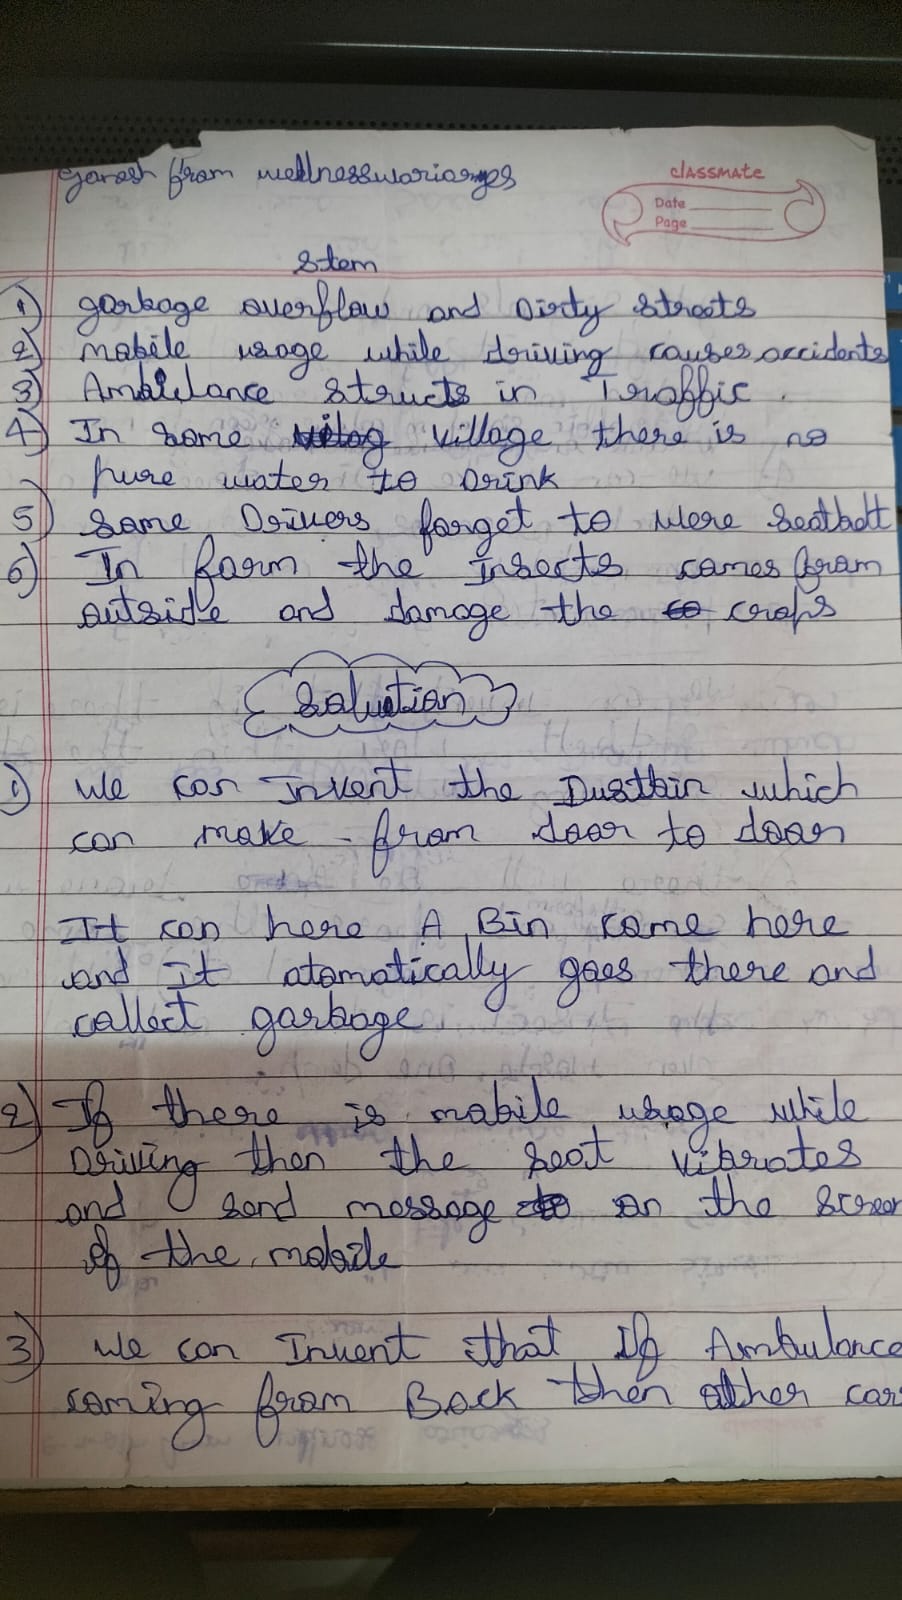 ganesh from wellnesswariorngs
classmate
Date
Page
Stem
1) garbage overflow and Dirty Streets
2) mobile usage while driving causes accidents
3) Ambulance Structs in Traffic.
4) In some village there is no
pure water to Drink
5) Some Drivers forget to were Seatbelt
6) In farm the Insects comes from
outside and damage the crops
Solution
1) We can Invent the Dustbin which
can make from door to door
It can here A Bin come here
and It atomatically goes there and
collect garbage
2) If there is mobile usage while
Driving then the seat vibrates
and send message on the screen
of the mobile
3) We can Invent that If Ambulance
coming from Back then other car